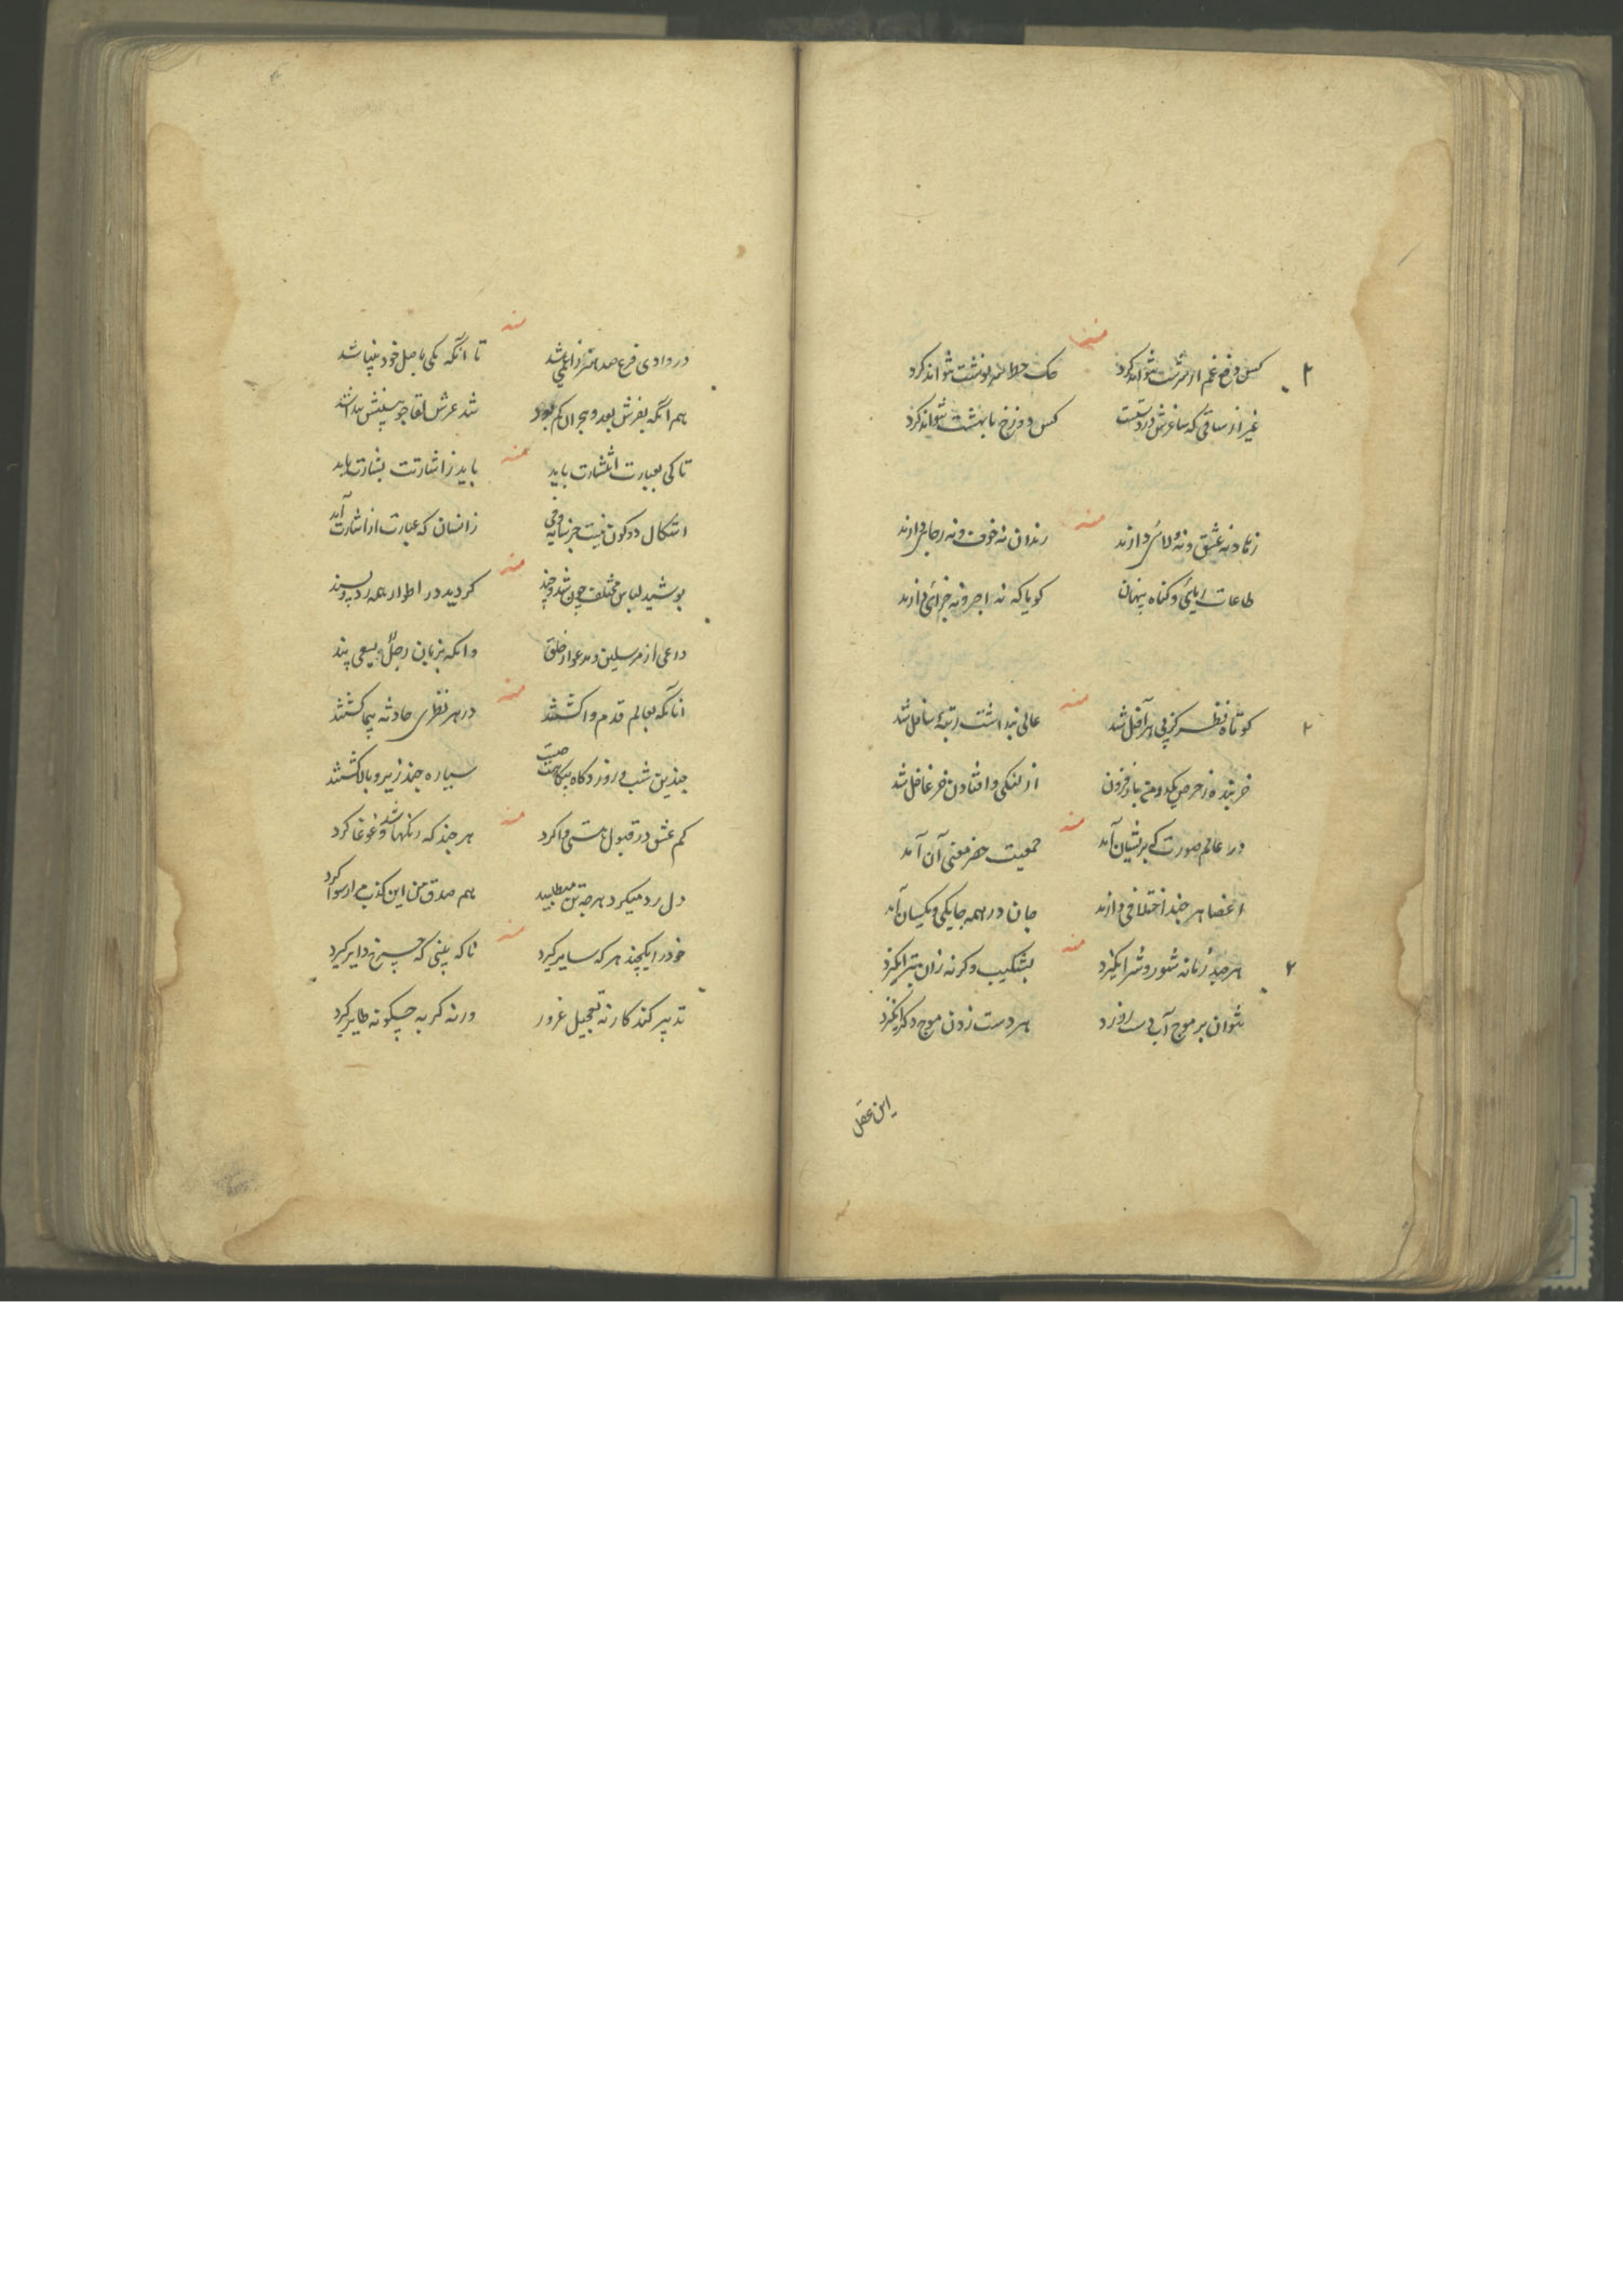 منه
کس دفع غم از سرشت نتواند کرد حک خط سرنوشت نتواند کرد
غیر از ساقی که ساغرش در دستست کس دوزخ را بهشت نتواند کرد
منه
زهاد نه عشق و نه ولائی دارند رندان نه خوف و نه رجایی دارند
طاعات ریائی و کناه پنهان کویا که نه اجر و نه جزائی دارند
منه
کوتاه نظر کز پی هر آفل شد عالی نبداشت رتبهٔ سافل شد
خربنده ز حرص یکدو من بار فزون از لنکی و افتادن خر غافل شد
منه
در عالم صورت که پریشان آمد جمعیت حضر معنی آن آمد
اعضا هر چند اختلافی دارند جان در همه جا یکی و یکسان آمد
منه
هر چند زمانه شور و شر انکیزد بشکیب وکرنه زان بتر انکیزد
نتوان بر موج آب دست رد زد هر دست زدن موج دکر انکیزد
این عقل
منه
در وادی فرع صد هنر زا باشد تا آنکه یکی باصل خود بینا شد
هم آنکه بفرش بعد و هجران کم بود شد عرش لقا چو بینشش پیدا شد
منه
تا کی بعبارت اشارت باید باید ز اشارتت بشارت باید
اشکال دو کون نیست جز سایه وفی زانسان که عبارت از اشارت آمد
منه
پوشید لباس مختلف چون شه و چند کردید در اطوار همه رد و پسند
داعی از مرسلین و مدعو از خلق وانکه بزبان رجل یسعی پند
منه
آنانکه بعالم قدم وا کشتند در هر نظری حادثه پیما کشتند
چندین شب و روز و کاه بیکاه سیاره چند زیر و بالا کشتند
منه
کم عشق در قبول هستی وا کرد هر چند که رنکها شد و غوغا کرد
دل رد میکرد هر چه تن میطلبید هم صدق من این کذب مرا رسوا کرد
منه
خود را یکچند هر که سایر کیرد تا که بینی که چرخ دایر کیرد
تدبیر کند کار نه تعجیل غرور ورنه کربه چکونه طایر کیرد